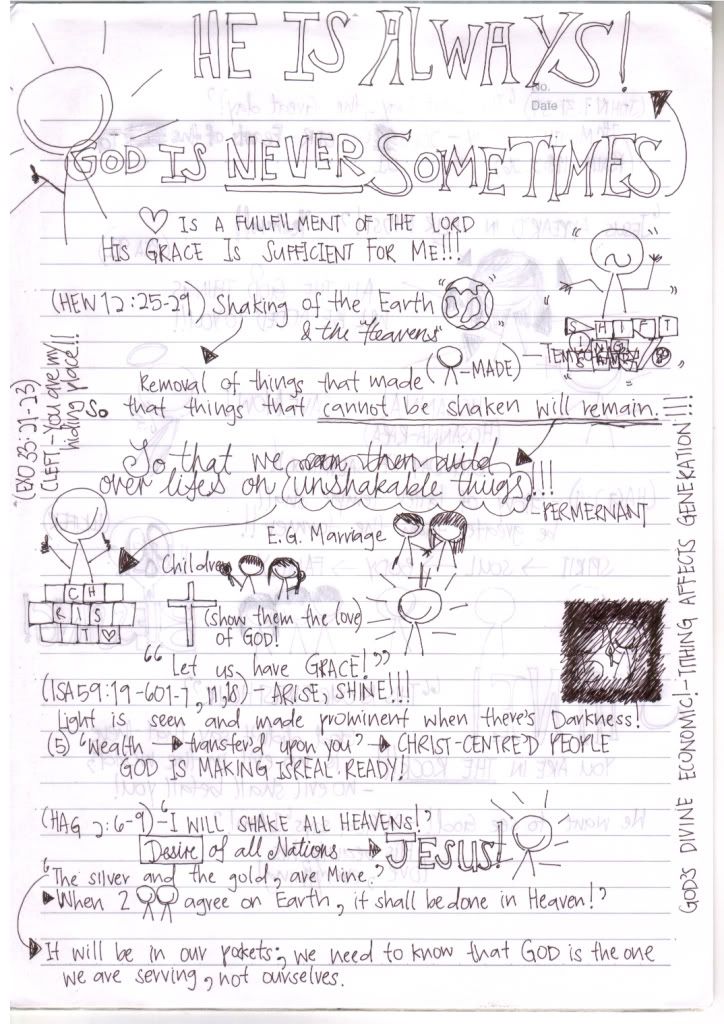 HE IS ALWAYS!
No.
Date
GOD IS NEVER SOMETIMES
♡ IS A FULLFILMENT OF THE LORD
HIS GRACE IS SUFFICIENT FOR ME!!!
(HEW 12:25-29) Shaking of the Earth
& the "Heavens"
SHIFT
ING
Removal of things that made (-MADE)
So that things that cannot be shaken will remain.!!!
(EXO 33:21-23)
CLEFT - You are my
hiding place!!
So that we can then build
over lifes on unshakable things,!!!
-PERMERNANT
E.G. Marriage
Children
CH
RIS
T♡
(show them the love)
of GOD!
"Let us, have GRACE!"
(ISA 59:19-601-7, 17,18) - ARISE, SHINE!!!
Light is seen and made prominent when there's Darkness!
(5) "Wealth → transfer'd upon you? → CHRIST-CENTRE'D PEOPLE
GOD IS MAKING ISREAL READY!
(HAG 2:6-9) - "I WILL SHAKE ALL HEAVENS!"
Desire of all Nations → JESUS!
"The silver and the gold, are Mine."
When 2 agree on Earth, it shall be done in Heaven!"
It will be in our pockets; we need to know that GOD is the one
we are serving, not ourselves.
GODS DIVINE ECONOMIC! - TITHING AFFECTS GENERATION!